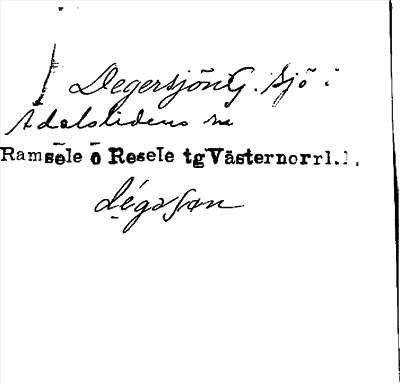 Degersjön G. sjö i
Ådalslidens sn
Ramsele o Resele tg Västernorrl.l.